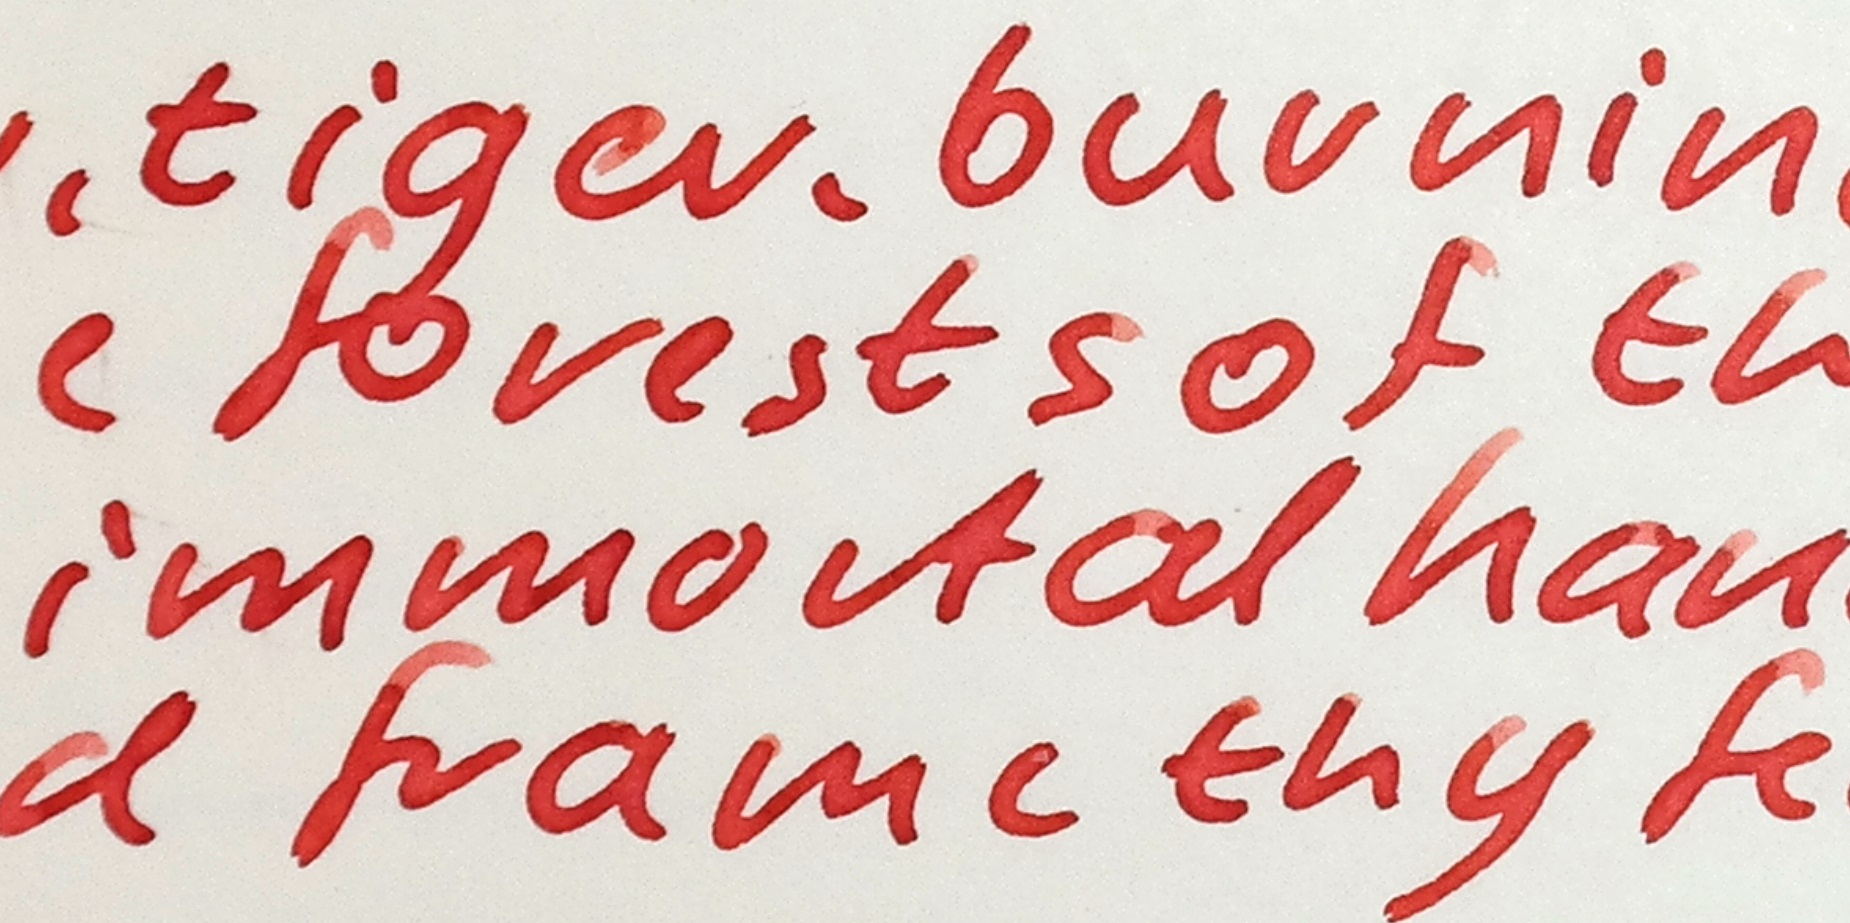 , tiger, burning
e forests of th
immortal han
d frame thy fe